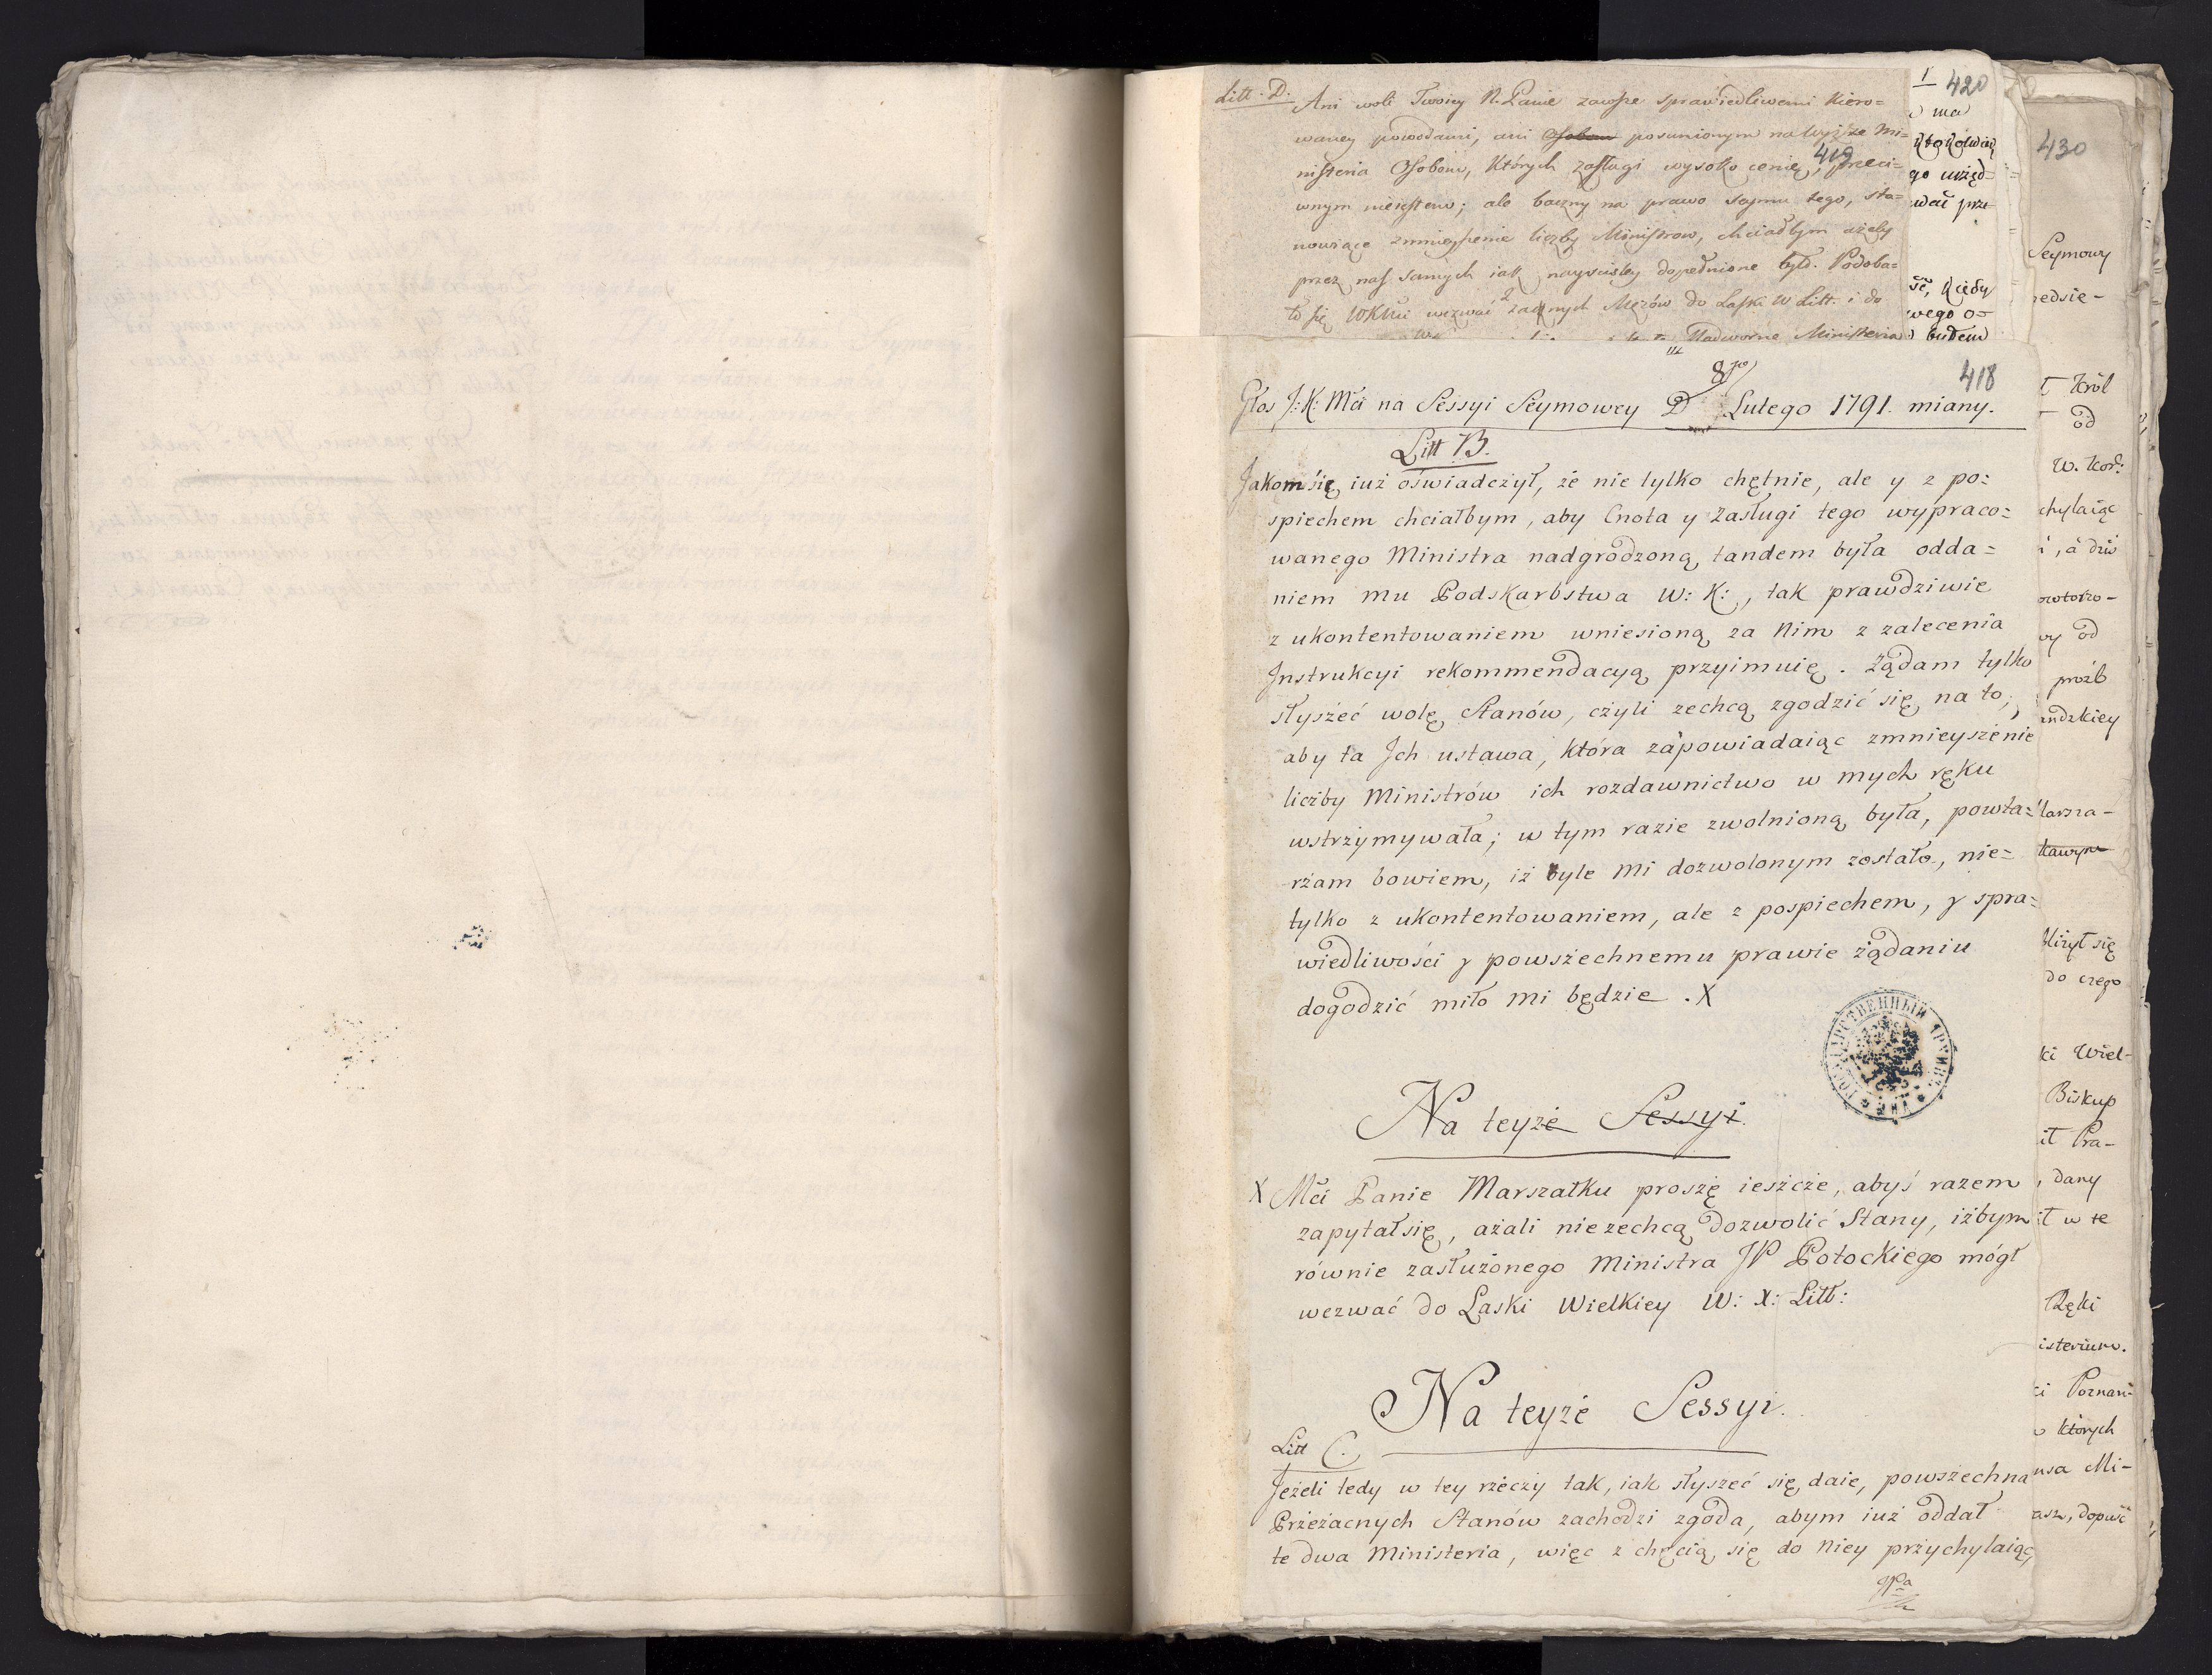 Litt. D.
Ani woli Twoiey N. Panie zawsze sprawiedliwemi kiero=
waney powodami, ani Osobom posunionym na wyższe Mi=
nisteria Osobom, których zasługi wysoko cenię, przeci=
wnym nieiestem; ale baczny na prawo Seymu tego, sta=
nowiące zmnieyszenie liczby Ministrow, chciałbym ażeby
przez nas samych iak nayściśley dopełnione było. Podoba=
ło się WKMci wezwać 2 zacnych Mężów do Laski W Litt. i do
Nadworne Ministeria
420
419
430
418
Głos J: K: Mci na Sessyi Seymowey D 8go Lutego 1791. miany.
Litt B.
Jakom się iuż oświadczył, że nie tylko chętnie, ale y z po=
spiechem chciałbym, aby Cnota y zasługi tego wypraco=
wanego Ministra nadgrodzoną tandem była odda=
niem mu Podskarbstwa W: K:, tak prawdziwie
z ukontentowaniem wniesioną za Nim z zalecenia
Instrukcyi rekommendacyą przyimuię. Żądam tylko
słyszeć wolę Stanów, czyli zechcą zgodzić się na to,
aby ta Ich ustawa, która zapowiadaiąc zmnieyszenie
liczby Ministrów ich rozdawnictwo w mych ręku
wstrzymywała; w tym razie zwolnioną była, powta=
rzam bowiem, iż byle mi dozwolonym zostało, nie=
tylko z ukontentowaniem, ale z pospiechem, y spra=
wiedliwości y powszechnemu prawie żądaniu
dogodzić miło mi będzie. X
ГОСУДАРСТВЕННЫЙ АРХИВЪ
Na teyże Sessyi.
X Mci Panie Marszałku proszę ieszcze, abyś razem
zapytał się, ażali niezechcą dozwolić Stany, iżbym
równie zasłużonego Ministra JP Potockiego mógł
wezwać do Laski Wielkiey W: X: Litt:
Na teyże Sessyi.
Litt C.
Jeżeli tedy w tey rzeczy tak, iak słyszeć się daie, powszechna
Przezacnych Stanów zachodzi zgoda, abym iuż oddał
te dwa Ministeria, więc z chęcią się do Niey przychylaiąc,
ma
ktokolwiek
go urzęd=
wał prze
kiedy
wego o=
budem
Seymowy
edsie-
Król
od
W. Kor:
chylaiąc
i, a dziś
owotoro-
wy od
prożb
andzkiey
larsza-
Kawyn
kłizył się
do czego
ki Wiel-
Biskup
it Pra-
, dany
ił w te
Ręki
isterium.
i Poznań-
których
nsa Mi-
asz, dopuść